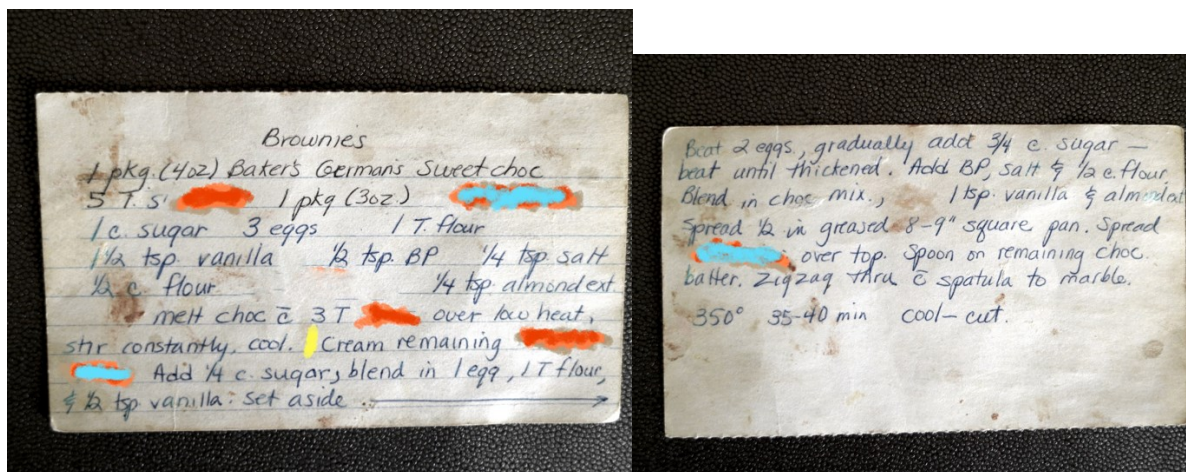 Brownies
1 pkg. (4oz) Baker's German's Sweet choc
5 T. 1 pkg (3oz.)
1 c. sugar 3 eggs 1 T. flour
1 1/2 tsp. vanilla 1/2 tsp. BP 1/4 tsp. salt
1/2 c. flour 1/4 tsp almond ext.
melt choc c̄ 3 T over low heat,
stir constantly, cool. Cream remaining
Add 1/4 c. sugar, blend in 1 egg, 1 T flour,
& 1/2 tsp vanilla. Set aside.
Beat 2 eggs, gradually add 3/4 c. sugar —
beat until thickened. Add BP, salt & 1/2 c. flour.
Blend in choc mix., 1 tsp. vanilla & almond ext
Spread 1/2 in greased 8-9" square pan. Spread
over top. Spoon on remaining choc.
batter. Zigzag thru c̄ spatula to marble.
350° 35-40 min cool - cut.